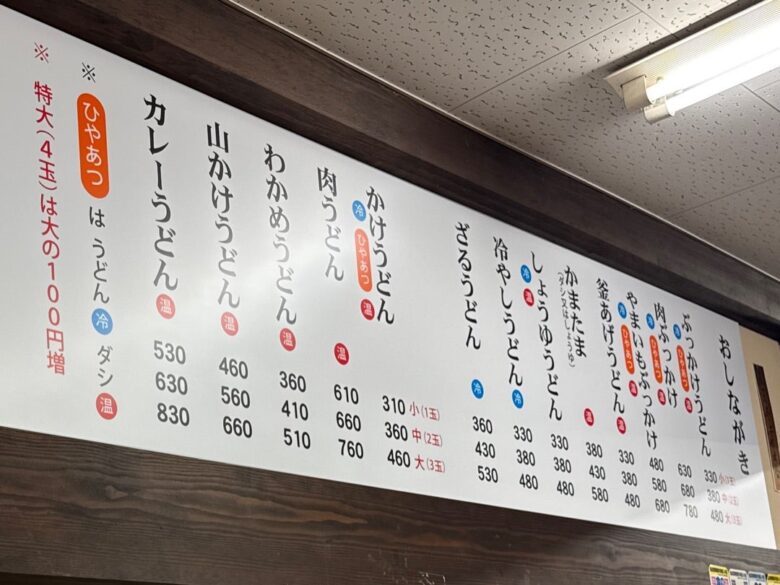 おしながき
ぶっかけうどん 冷 ひやあつ 温 330 小(1玉) 380 中(2玉) 480 大(3玉)
肉ぶっかけ 冷 ひやあつ 温 630 680 780
やまいもぶっかけ 冷 ひやあつ 温 480 580 680
釜あげうどん 温 330 380 480
かまたま (ダシ又はしょうゆ) 温 380 430 580
しょうゆうどん 冷 温 330 380 480
冷やしうどん 冷 330 380 480
ざるうどん 冷 360 430 530
かけうどん 冷 ひやあつ 温 310 小(1玉) 360 中(2玉) 460 大(3玉)
肉うどん 温 610 660 760
わかめうどん 温 360 410 510
山かけうどん 温 460 560 660
カレーうどん 温 530 630 830
※ ひやあつ は うどん 冷 ダシ 温
※ 特大(4玉)は大の100円増